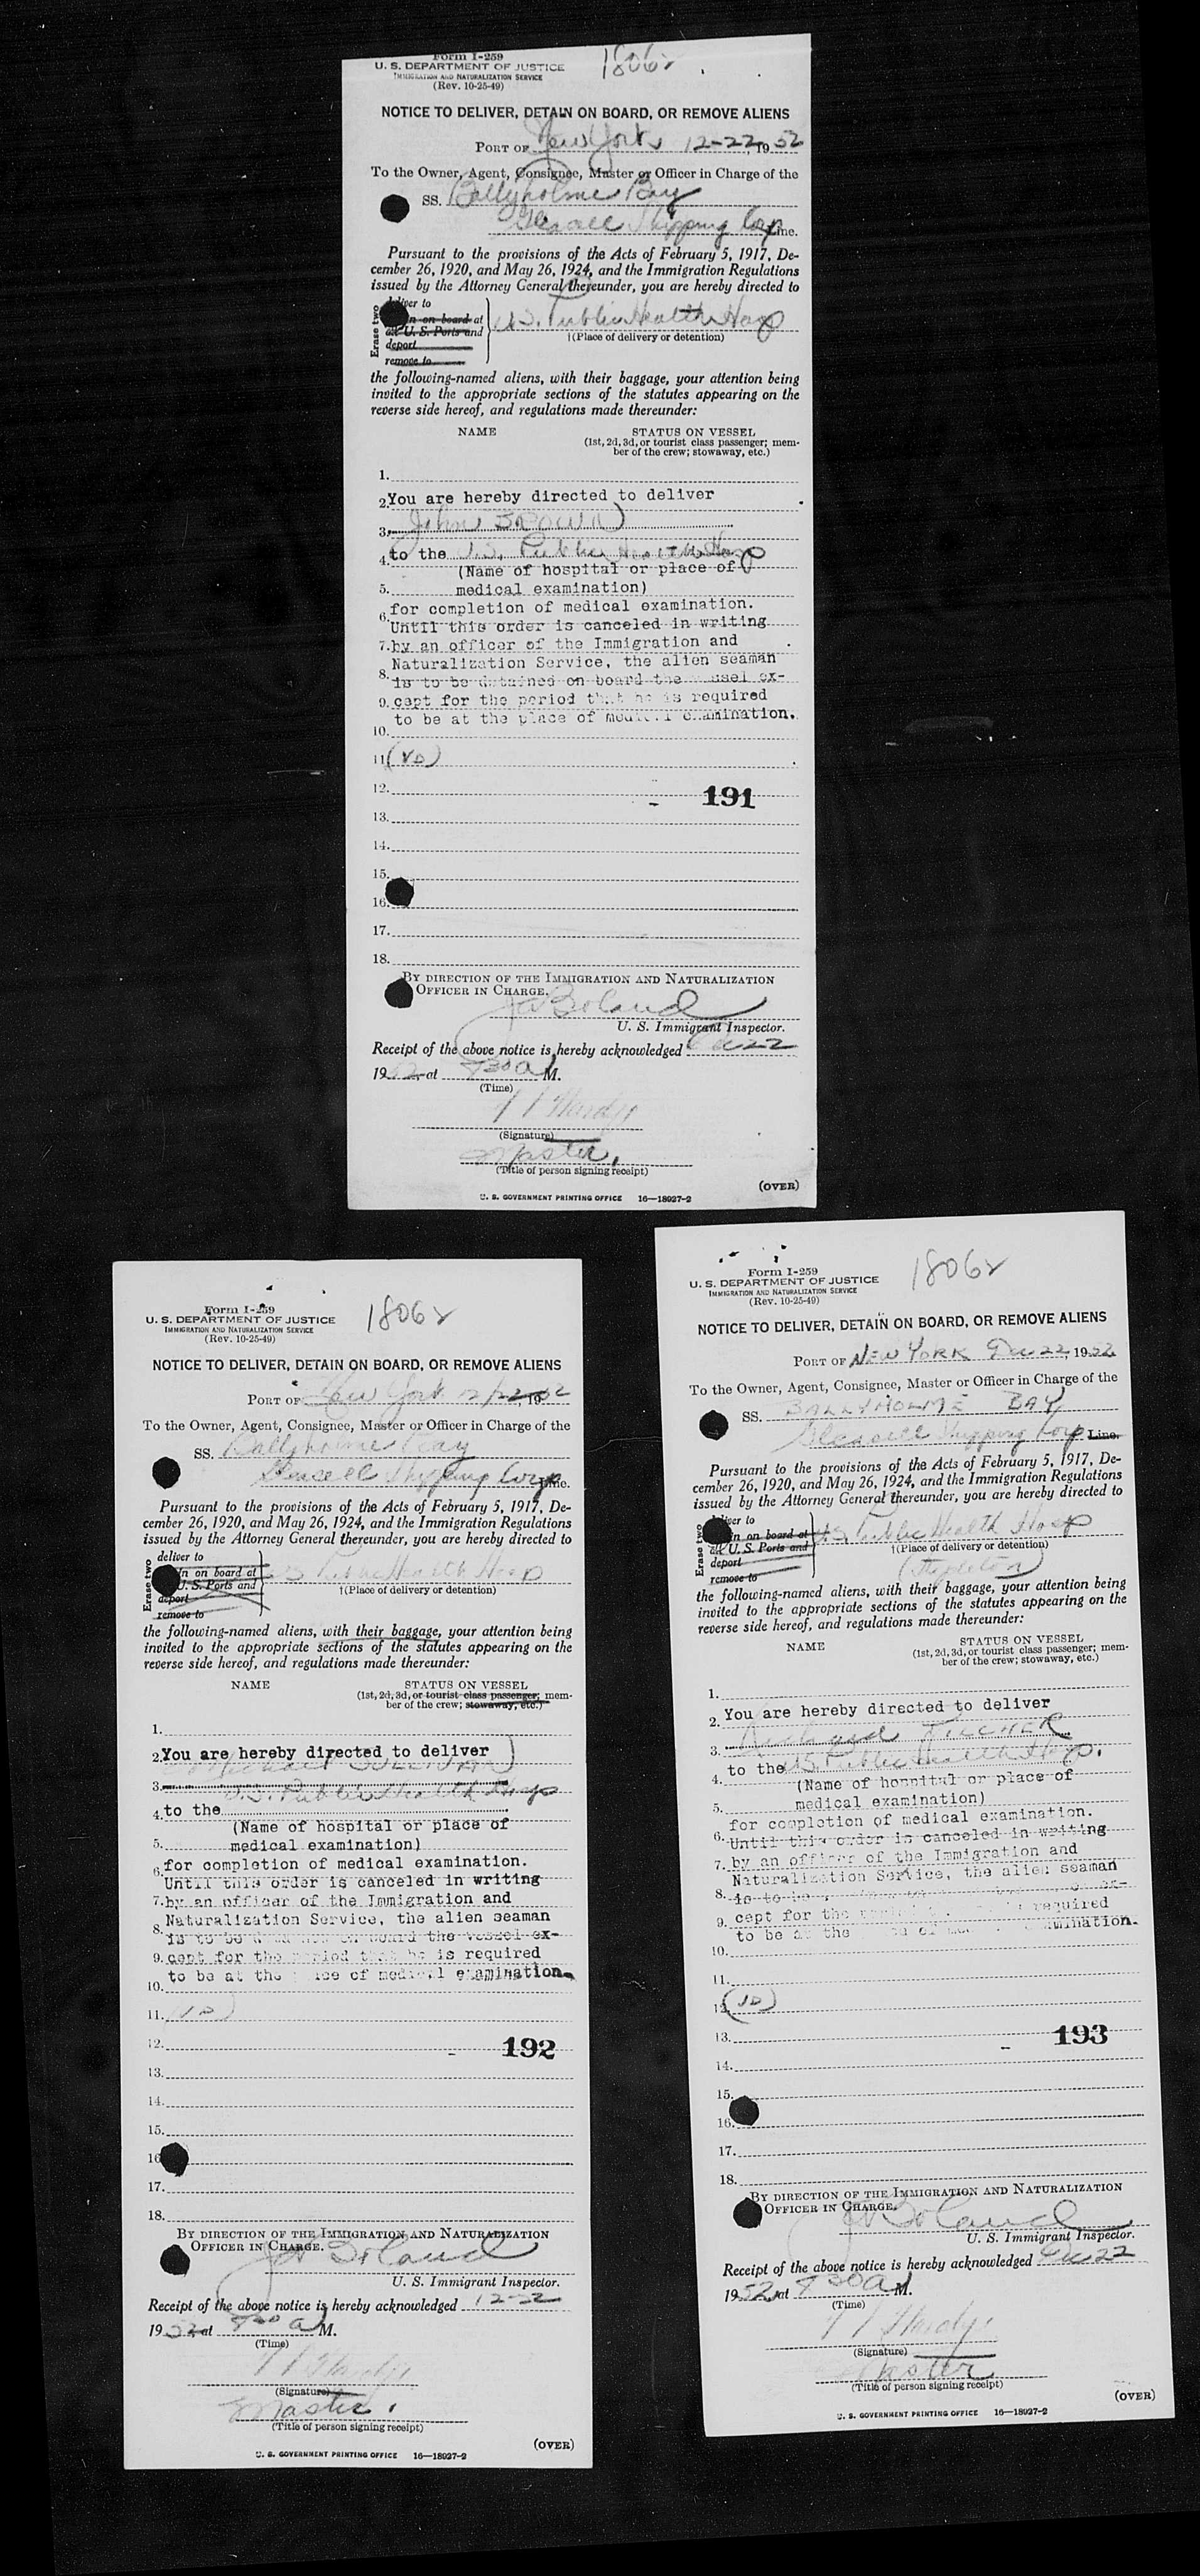 Form I-259
U. S. DEPARTMENT OF JUSTICE
IMMIGRATION AND NATURALIZATION SERVICE
(Rev. 10-25-49)
18062
NOTICE TO DELIVER, DETAIN ON BOARD, OR REMOVE ALIENS
PORT OF New York 12-22, 1952
To the Owner, Agent, Consignee, Master or Officer in Charge of the
SS. Ballyholme Bay
Shipping Corp Line.
Pursuant to the provisions of the Acts of February 5, 1917, De-
cember 26, 1920, and May 26, 1924, and the Immigration Regulations
issued by the Attorney General thereunder, you are hereby directed to
Erase two
deliver to
on board at
all U. S. Ports and
deport
remove to
U.S. Public Health Hosp
†(Place of delivery or detention)
the following-named aliens, with their baggage, your attention being
invited to the appropriate sections of the statutes appearing on the
reverse side hereof, and regulations made thereunder:
NAME STATUS ON VESSEL
(1st, 2d, 3d, or tourist class passenger; mem-
ber of the crew; stowaway, etc.)
1.
2. You are hereby directed to deliver
3. John BROWN
4. to the U.S. Public Health Hosp
(Name of hospital or place of
5. medical examination)
for completion of medical examination.
6. Until this order is canceled in writing
7. by an officer of the Immigration and
Naturalization Service, the alien seaman
8. is to be detained on board the vessel ex-
9. cept for the period that he is required
to be at the place of medical examination.
10.
11. (VD)
12.
191
13.
14.
15.
16.
17.
18.
BY DIRECTION OF THE IMMIGRATION AND NATURALIZATION
OFFICER IN CHARGE.
Boland
U. S. Immigrant Inspector.
Receipt of the above notice is hereby acknowledged Dec 22
1952 at 730 A M.
(Time)
Hardy
(Signature)
Master.
(Title of person signing receipt)
(OVER)
U. S. GOVERNMENT PRINTING OFFICE 16—18927-2
Form I-259
U. S. DEPARTMENT OF JUSTICE
IMMIGRATION AND NATURALIZATION SERVICE
(Rev. 10-25-49)
18062
NOTICE TO DELIVER, DETAIN ON BOARD, OR REMOVE ALIENS
PORT OF New York 12/22, 1952
To the Owner, Agent, Consignee, Master or Officer in Charge of the
SS. Ballyholme Bay
Shipping Corp Line.
Pursuant to the provisions of the Acts of February 5, 1917, De-
cember 26, 1920, and May 26, 1924, and the Immigration Regulations
issued by the Attorney General thereunder, you are hereby directed to
Erase two
deliver to
in on board at
U. S. Ports and
deport
remove to
US Public Health Hosp
†(Place of delivery or detention)
the following-named aliens, with their baggage, your attention being
invited to the appropriate sections of the statutes appearing on the
reverse side hereof, and regulations made thereunder:
NAME STATUS ON VESSEL
(1st, 2d, 3d, or tourist class passenger; mem-
ber of the crew; stowaway, etc.)
1.
2. You are hereby directed to deliver
3. Michael SULLIVAN
U.S. Public Health Hosp
4. to the
(Name of hospital or place of
5. medical examination)
6. for completion of medical examination.
Until this order is canceled in writing
7. by an officer of the Immigration and
Naturalization Service, the alien seaman
8. is to be detained on board the vessel ex-
9. cept for the period that he is required
to be at the place of medical examination.
10.
11. (VD)
12.
192
13.
14.
15.
16
17.
18.
BY DIRECTION OF THE IMMIGRATION AND NATURALIZATION
OFFICER IN CHARGE.
Boland
U. S. Immigrant Inspector.
Receipt of the above notice is hereby acknowledged 12-22
1952 at 730 A M.
(Time)
Hardy
(Signature)
Master.
(Title of person signing receipt)
(OVER)
U. S. GOVERNMENT PRINTING OFFICE 16—18927-2
Form I-259
U. S. DEPARTMENT OF JUSTICE
IMMIGRATION AND NATURALIZATION SERVICE
(Rev. 10-25-49)
18062
NOTICE TO DELIVER, DETAIN ON BOARD, OR REMOVE ALIENS
PORT OF NEW YORK Dec 22, 1952
To the Owner, Agent, Consignee, Master or Officer in Charge of the
SS. BALLYHOLME BAY
Shipping Corp Line.
Pursuant to the provisions of the Acts of February 5, 1917, De-
cember 26, 1920, and May 26, 1924, and the Immigration Regulations
issued by the Attorney General thereunder, you are hereby directed to
Erase two
deliver to
in on board at
all U. S. Ports and
deport
remove to
U.S. Public Health Hosp
†(Place of delivery or detention)
(Stapleton)
the following-named aliens, with their baggage, your attention being
invited to the appropriate sections of the statutes appearing on the
reverse side hereof, and regulations made thereunder:
NAME STATUS ON VESSEL
(1st, 2d, 3d, or tourist class passenger; mem-
ber of the crew; stowaway, etc.)
1.
2. You are hereby directed to deliver
3. Richard PILCHER
4. to the U.S. Public Health Hosp.
(Name of hospital or place of
5. medical examination)
for completion of medical examination.
6. Until this order is canceled in writing
7. by an officer of the Immigration and
Naturalization Service, the alien seaman
8. is to be ex-
9. cept for the required
to be at the examination.
10.
11.
12. (VD)
13.
193
14.
15.
16.
17.
18.
BY DIRECTION OF THE IMMIGRATION AND NATURALIZATION
OFFICER IN CHARGE.
Boland
U. S. Immigrant Inspector.
Receipt of the above notice is hereby acknowledged Dec 22
1952 at 730 A M.
(Time)
Hardy
(Signature)
Master
(Title of person signing receipt)
(OVER)
U. S. GOVERNMENT PRINTING OFFICE 16—18927-2